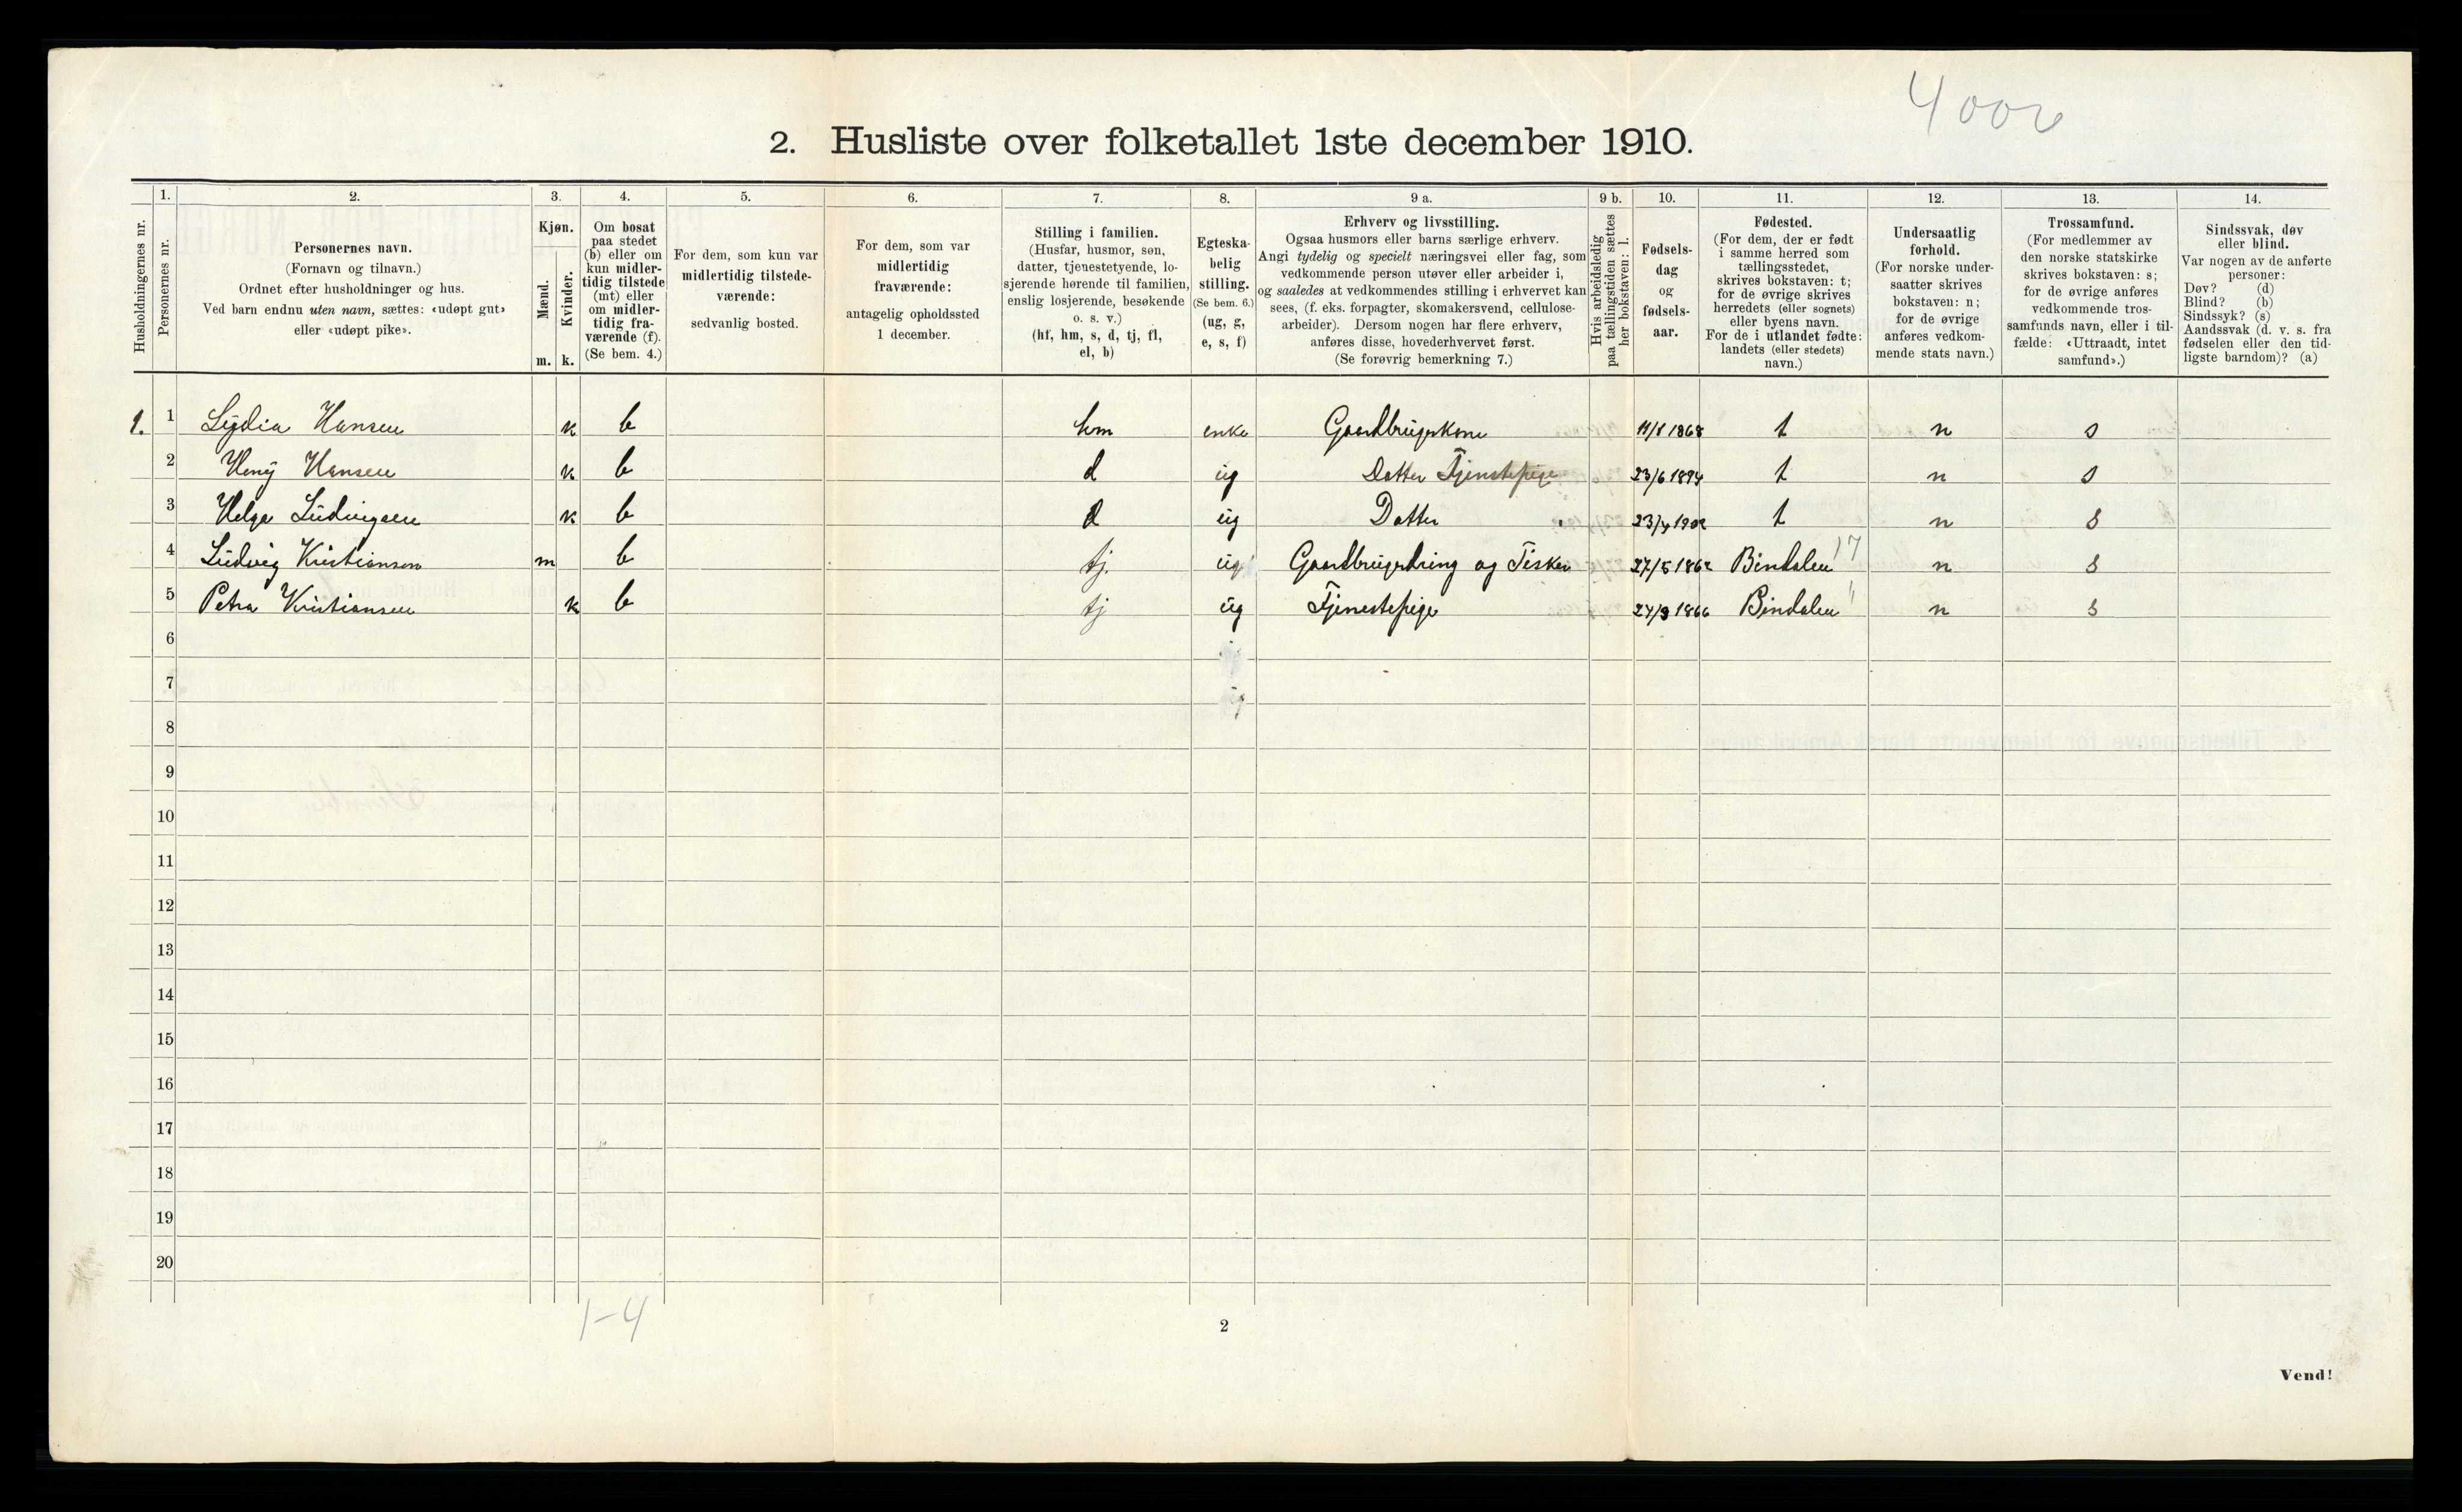 4002
2. Husliste over folketallet 1ste december 1910.
Husholdningernes nr.
1.
Personernes nr.
2.
Personernes navn.
(Fornavn og tilnavn.)
Ordnet efter husholdninger og hus.
Ved barn endnu uten navn, sættes: «udøpt gut»
eller «udøpt pike».
3.
Kjøn.
Mænd.
m.
Kvinder.
k.
4.
Om bosat
paa stedet
(b) eller om
kun midler-
tidig tilstede
(mt) eller
om midler-
tidig fra-
værende (f).
(Se bem. 4.)
5.
For dem, som kun var
midlertidig tilstede-
værende:
sedvanlig bosted.
6.
For dem, som var
midlertidig
fraværende:
antagelig opholdssted
1 december.
7.
Stilling i familien.
(Husfar, husmor, søn,
datter, tjenestetyende, lo-
sjerende hørende til familien,
enslig losjerende, besøkende
o. s. v.)
(hf, hm, s, d, tj, fl,
el, b)
8.
Egteska-
belig
stilling.
(Se bem. 6.)
(ug, g,
e, s, f)
9 a.
Erhverv og livsstilling.
Ogsaa husmors eller barns særlige erhverv.
Angi tydelig og specielt næringsvei eller fag, som
vedkommende person utøver eller arbeider i,
og saaledes at vedkommendes stilling i erhvervet kan
sees, (f. eks. forpagter, skomakersvend, cellulose-
arbeider). Dersom nogen har flere erhverv,
anføres disse, hovederhvervet først.
(Se forøvrig bemerkning 7.)
9 b.
Hvis arbeidsledig
paa tællingstiden sættes
her bokstaven: l.
10.
Fødsels-
dag
og
fødsels-
aar.
11.
Fødested.
(For dem, der er født
i samme herred som
tællingsstedet,
skrives bokstaven: t;
for de øvrige skrives
herredets (eller sognets)
eller byens navn.
For de i utlandet fødte:
landets (eller stedets)
navn.)
12.
Undersaatlig
forhold.
(For norske under-
saatter skrives
bokstaven: n;
for de øvrige
anføres vedkom-
mende stats navn.)
13.
Trossamfund.
(For medlemmer av
den norske statskirke
skrives bokstaven: s;
for de øvrige anføres
vedkommende tros-
samfunds navn, eller i til-
fælde: «Uttraadt, intet
samfund».)
14.
Sindssvak, døv
eller blind.
Var nogen av de anførte
personer:
Døv? (d)
Blind? (b)
Sindssyk? (s)
Aandssvak (d. v. s. fra
fødselen eller den tid-
ligste barndom)? (a)
1. 1 Lydia Hansen k b hm enke Gaardbrugerkone 11/8 1868 t n s
2 Heny Hansen k b d ug Datter Tjenstepige 23/6 1894 t n s
3 Helga Ludvigsen k b d ug Datter 23/4 1902 t n s
4 Ludvig Kristiansen m b tj. ug Gaardbrugerdreng og Fisker 27/5 1862 Bindalen 17 n s
5 Petra Kristiansen k b tj ug Tjenestepige 24/3 1866 Bindalen " n s
6
7
8
9
10
11
12
13
14
15
16
17
18
19
20
1-4
2
Vend!